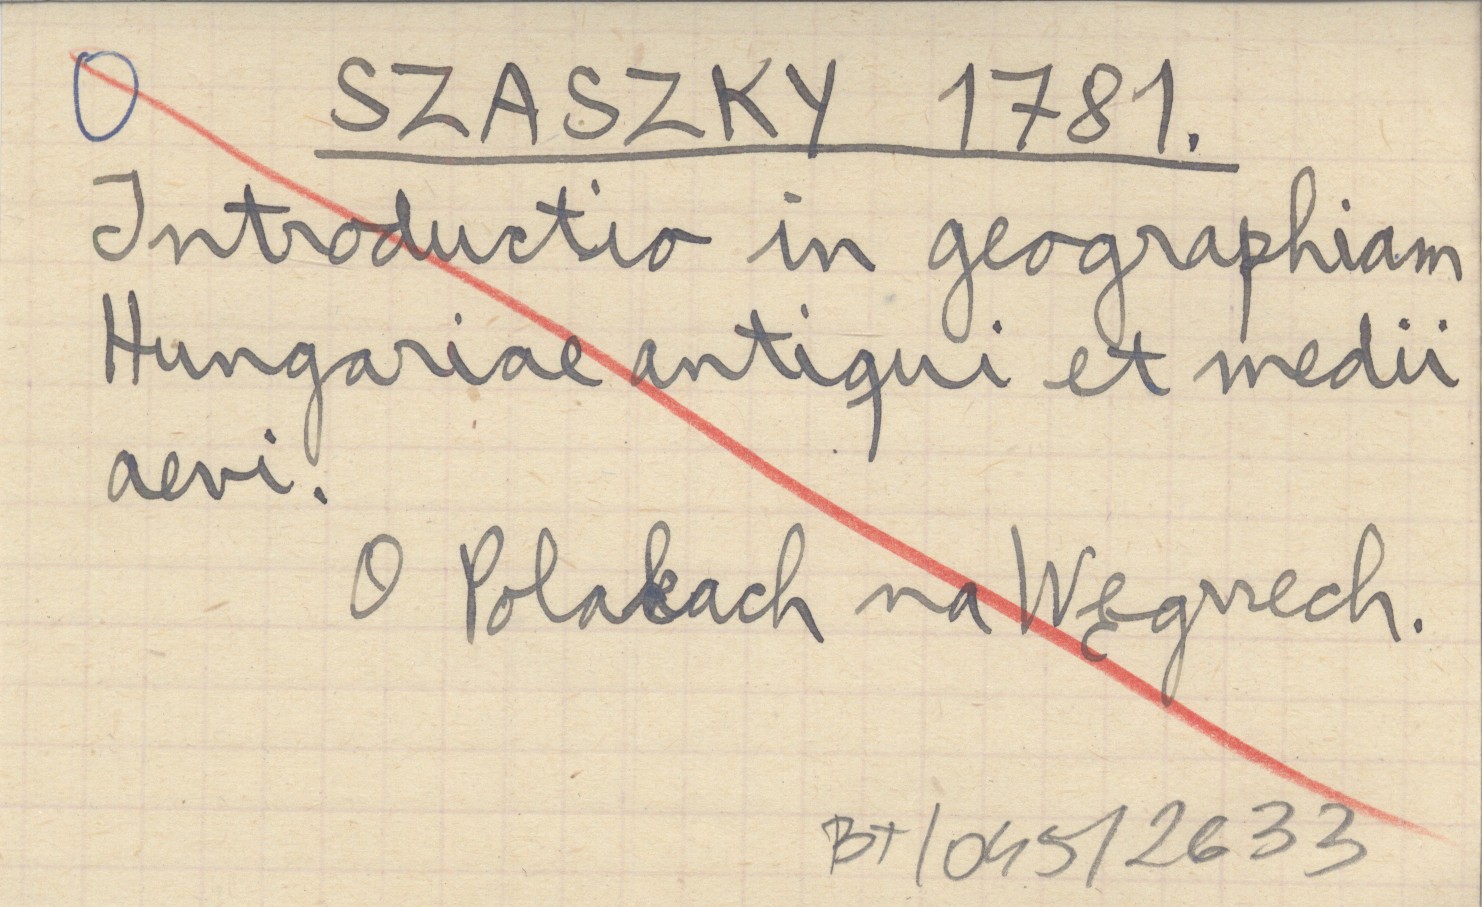 O SZASZKY 1781.
Introductio in geographiam
Hungariae antiqui et medii
aevi.
O Polakach na Węgrzech.
BT/045/2633